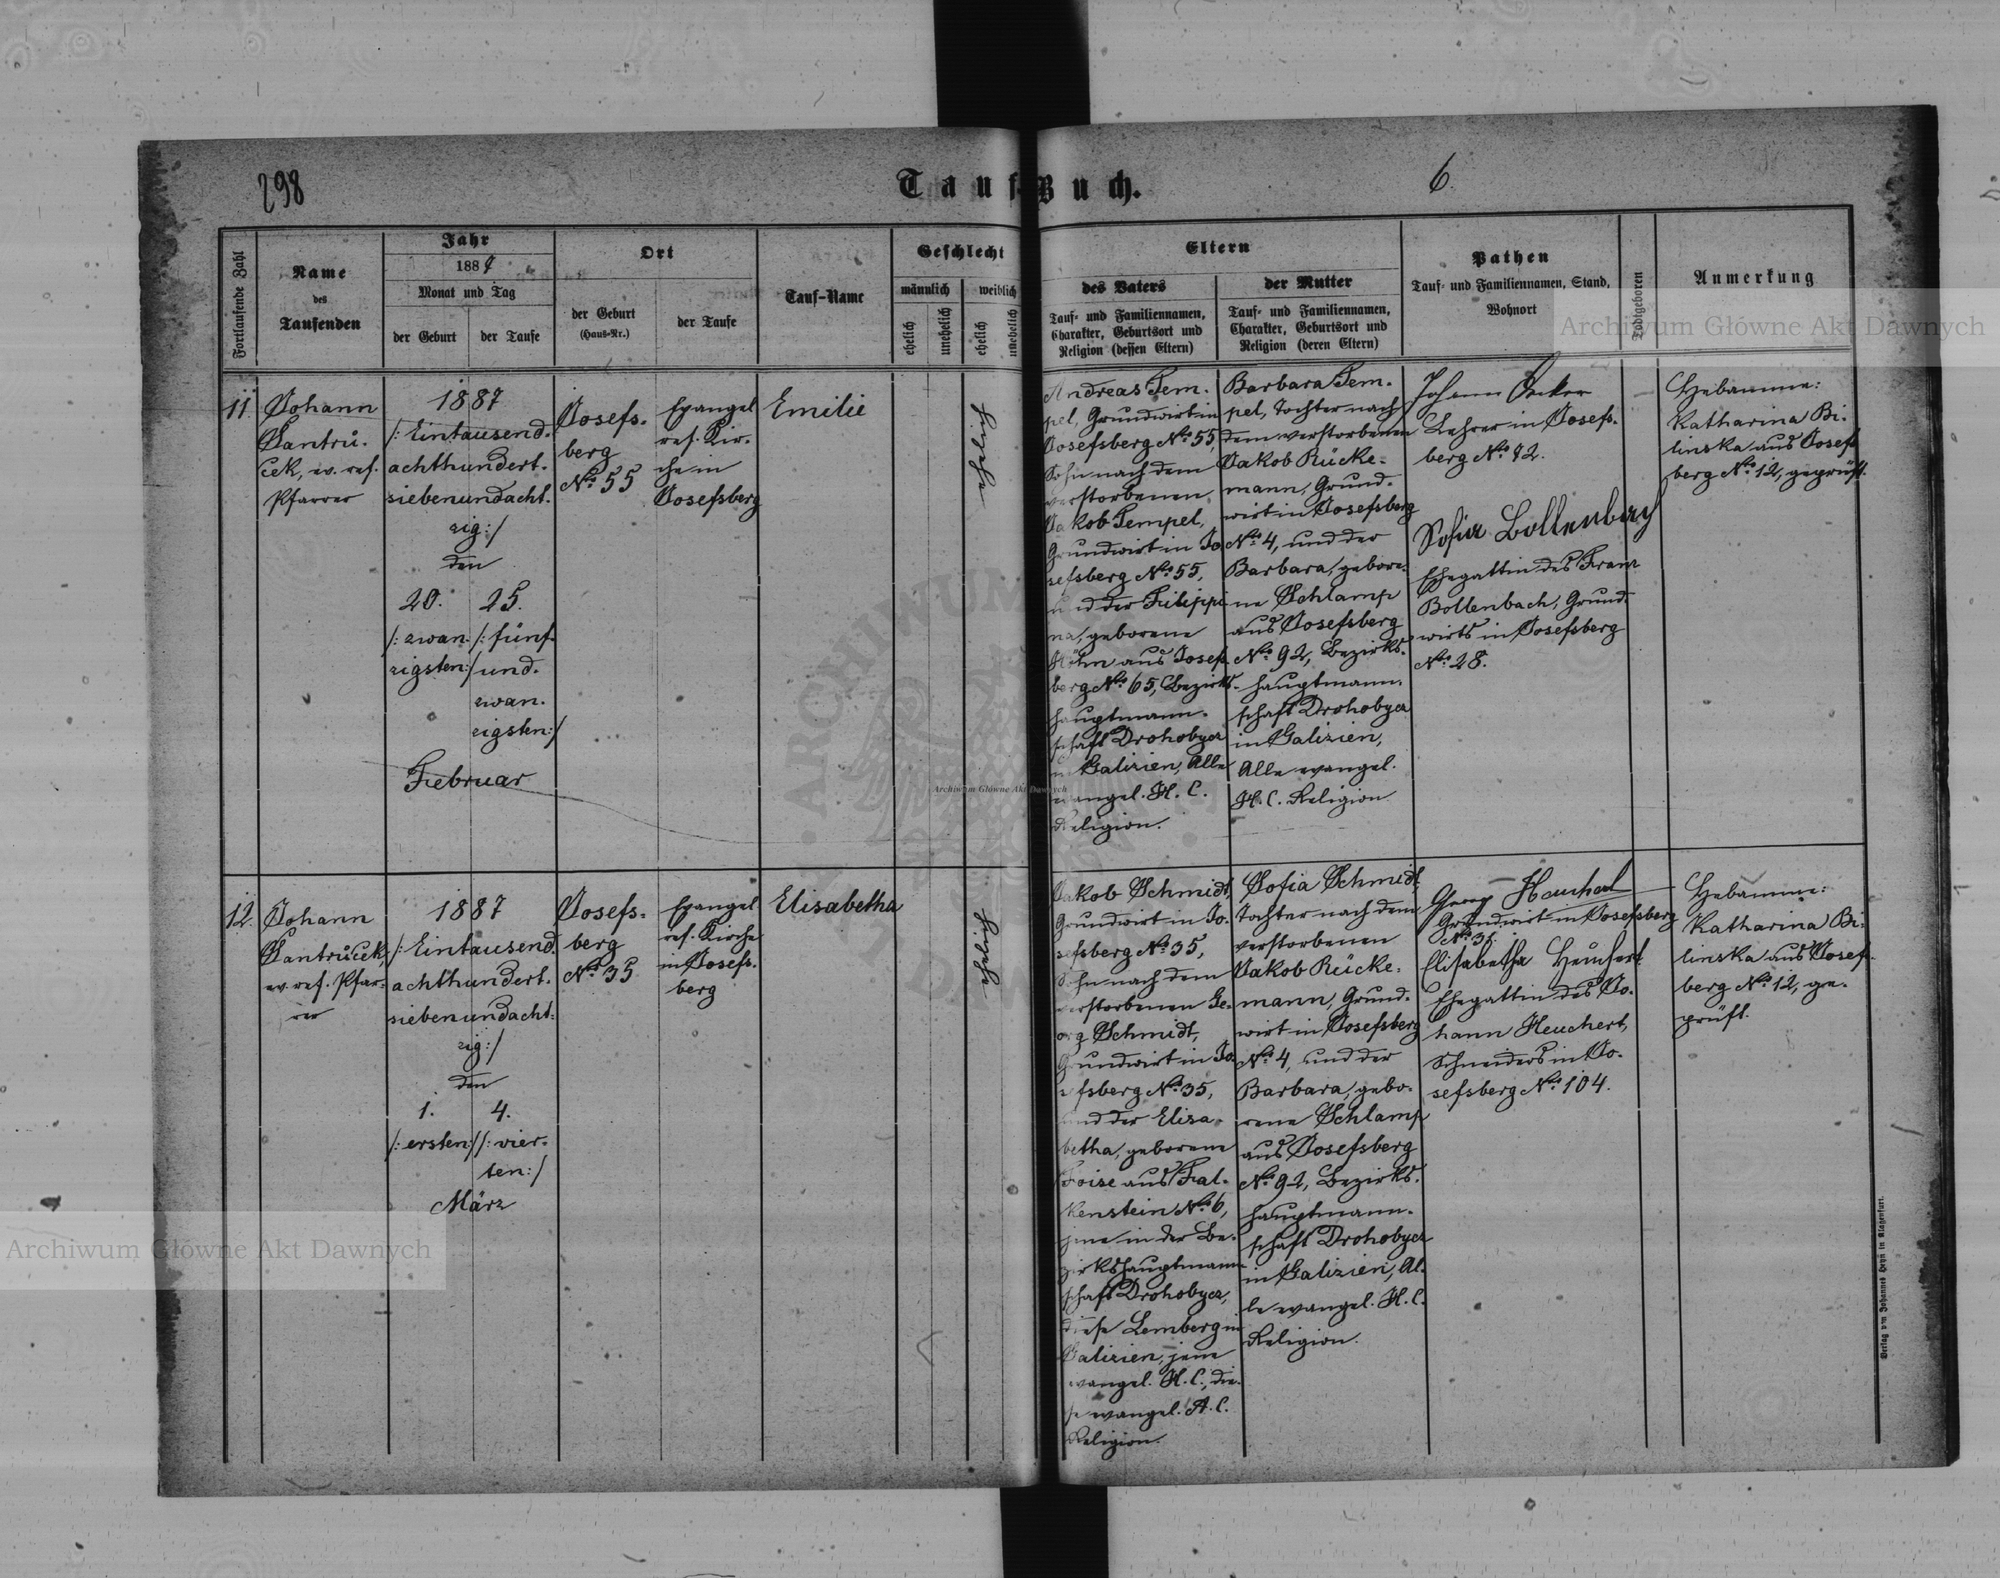 298
6.
Tauf-Buch.
Fortlaufende Zahl
Name
des
Taufenden
Jahr
1887
Monat und Tag
der Geburt
der Taufe
Ort
der Geburt
(Haus-Nr.)
der Taufe
Tauf-Name
Geschlecht
männlich
weiblich
ehelich
unehelich
ehelich
unehelich
Eltern
des Vaters
Tauf- und Familiennamen,
Charakter, Geburtsort und
Religion (dessen Eltern)
der Mutter
Tauf- und Familiennamen,
Charakter, Geburtsort und
Religion (deren Eltern)
Pathen
Tauf- und Familiennamen, Stand,
Wohnort
Todtgeboren
Anmerkung
11.
Johann
Jantrů-
ček, ev. ref.
Pfarrer
1887
/: Eintausend-
achthundert-
siebenundacht-
zig :/
den
20.
/: zwan-
zigsten :/
25.
/: fünf-
und-
zwan-
zigsten :/
Februar
Josefs-
berg
No. 55
Evangel.
ref. Kir-
che in
Josefsberg
Emilie
Andreas Tem-
pel, Grundwirt in
Josefsberg No. 55,
Sohn nach dem
verstorbenen
Jakob Tempel,
Grundwirt in Jo-
sefsberg No. 55,
und der Filippi-
na, geborene
aus Josefs-
berg No. 65, Bezirks-
hauptmann-
schaft Drohobycz
in Galizien, Alle
evangel. H. C.
Religion.
Barbara Tem-
pel, Tochter nach
dem verstorbenen
Jakob Rücke-
mann, Grund-
wirt in Josefsberg
No. 4, und der
Barbara, gebore-
ne Schlamp
aus Josefsberg
No. 92, Bezirks-
hauptmann-
schaft Drohobycz
in Galizien,
Alle evangel.
H. C. Religion
Johann
Lehrer in Josefs-
berg No. 92.
Sofia Bollenbach
Ehegattin des Franz
Bollenbach, Grund-
wirts in Josefsberg
No. 28.
Hebamme:
Katharina Bi-
linska aus Josefs-
berg No. 12, geprüft.
12.
Johann
Jantrůček,
ev. ref. Pfar-
rer
1887
/: Eintausend-
achthundert-
siebenundacht-
zig :/
den
1.
/: ersten :/
4.
/: vier-
ten :/
März
Josefs-
berg
No. 35
Evangel.
ref. Kirche
in Josefs-
berg
Elisabetha
Jakob Schmidt,
Grundwirt in Jo-
sefsberg No. 35,
Sohn nach dem
verstorbenen Ge-
org Schmidt,
Grundwirt in Jo-
sefsberg No. 35,
und der Elisa-
betha, geborene
aus Fal-
kenstein No. 6,
jene in der Be-
zirkshauptmann-
schaft Drohobycz,
diese Lemberg in
Galizien, jene
evangel. H. C., die-
se evangel. A. C.
Religion.
Sofia Schmidt,
Tochter nach dem
verstorbenen
Jakob Rücke-
mann, Grund-
wirt in Josefsberg
No. 4, und der
Barbara, gebo-
rene Schlamp
aus Josefsberg
No. 92, Bezirks-
hauptmann-
schaft Drohobycz
in Galizien, Al-
le evangel. H. C.
Religion.
Georg
Grundwirt in Josefsberg
No. 31.
Elisabetha Heuchert
Ehegattin des Jo-
hann Heuchert,
Schneiders in Jo-
sefsberg No. 104.
Hebamme:
Katharina Bi-
linska aus Josefs-
berg No. 12, ge-
prüft.
Verlag von Johannes Heyn in Klagenfurt.
Archiwum Główne Akt Dawnych
Archiwum Główne Akt Dawnych
Archiwum Główne Akt Dawnych